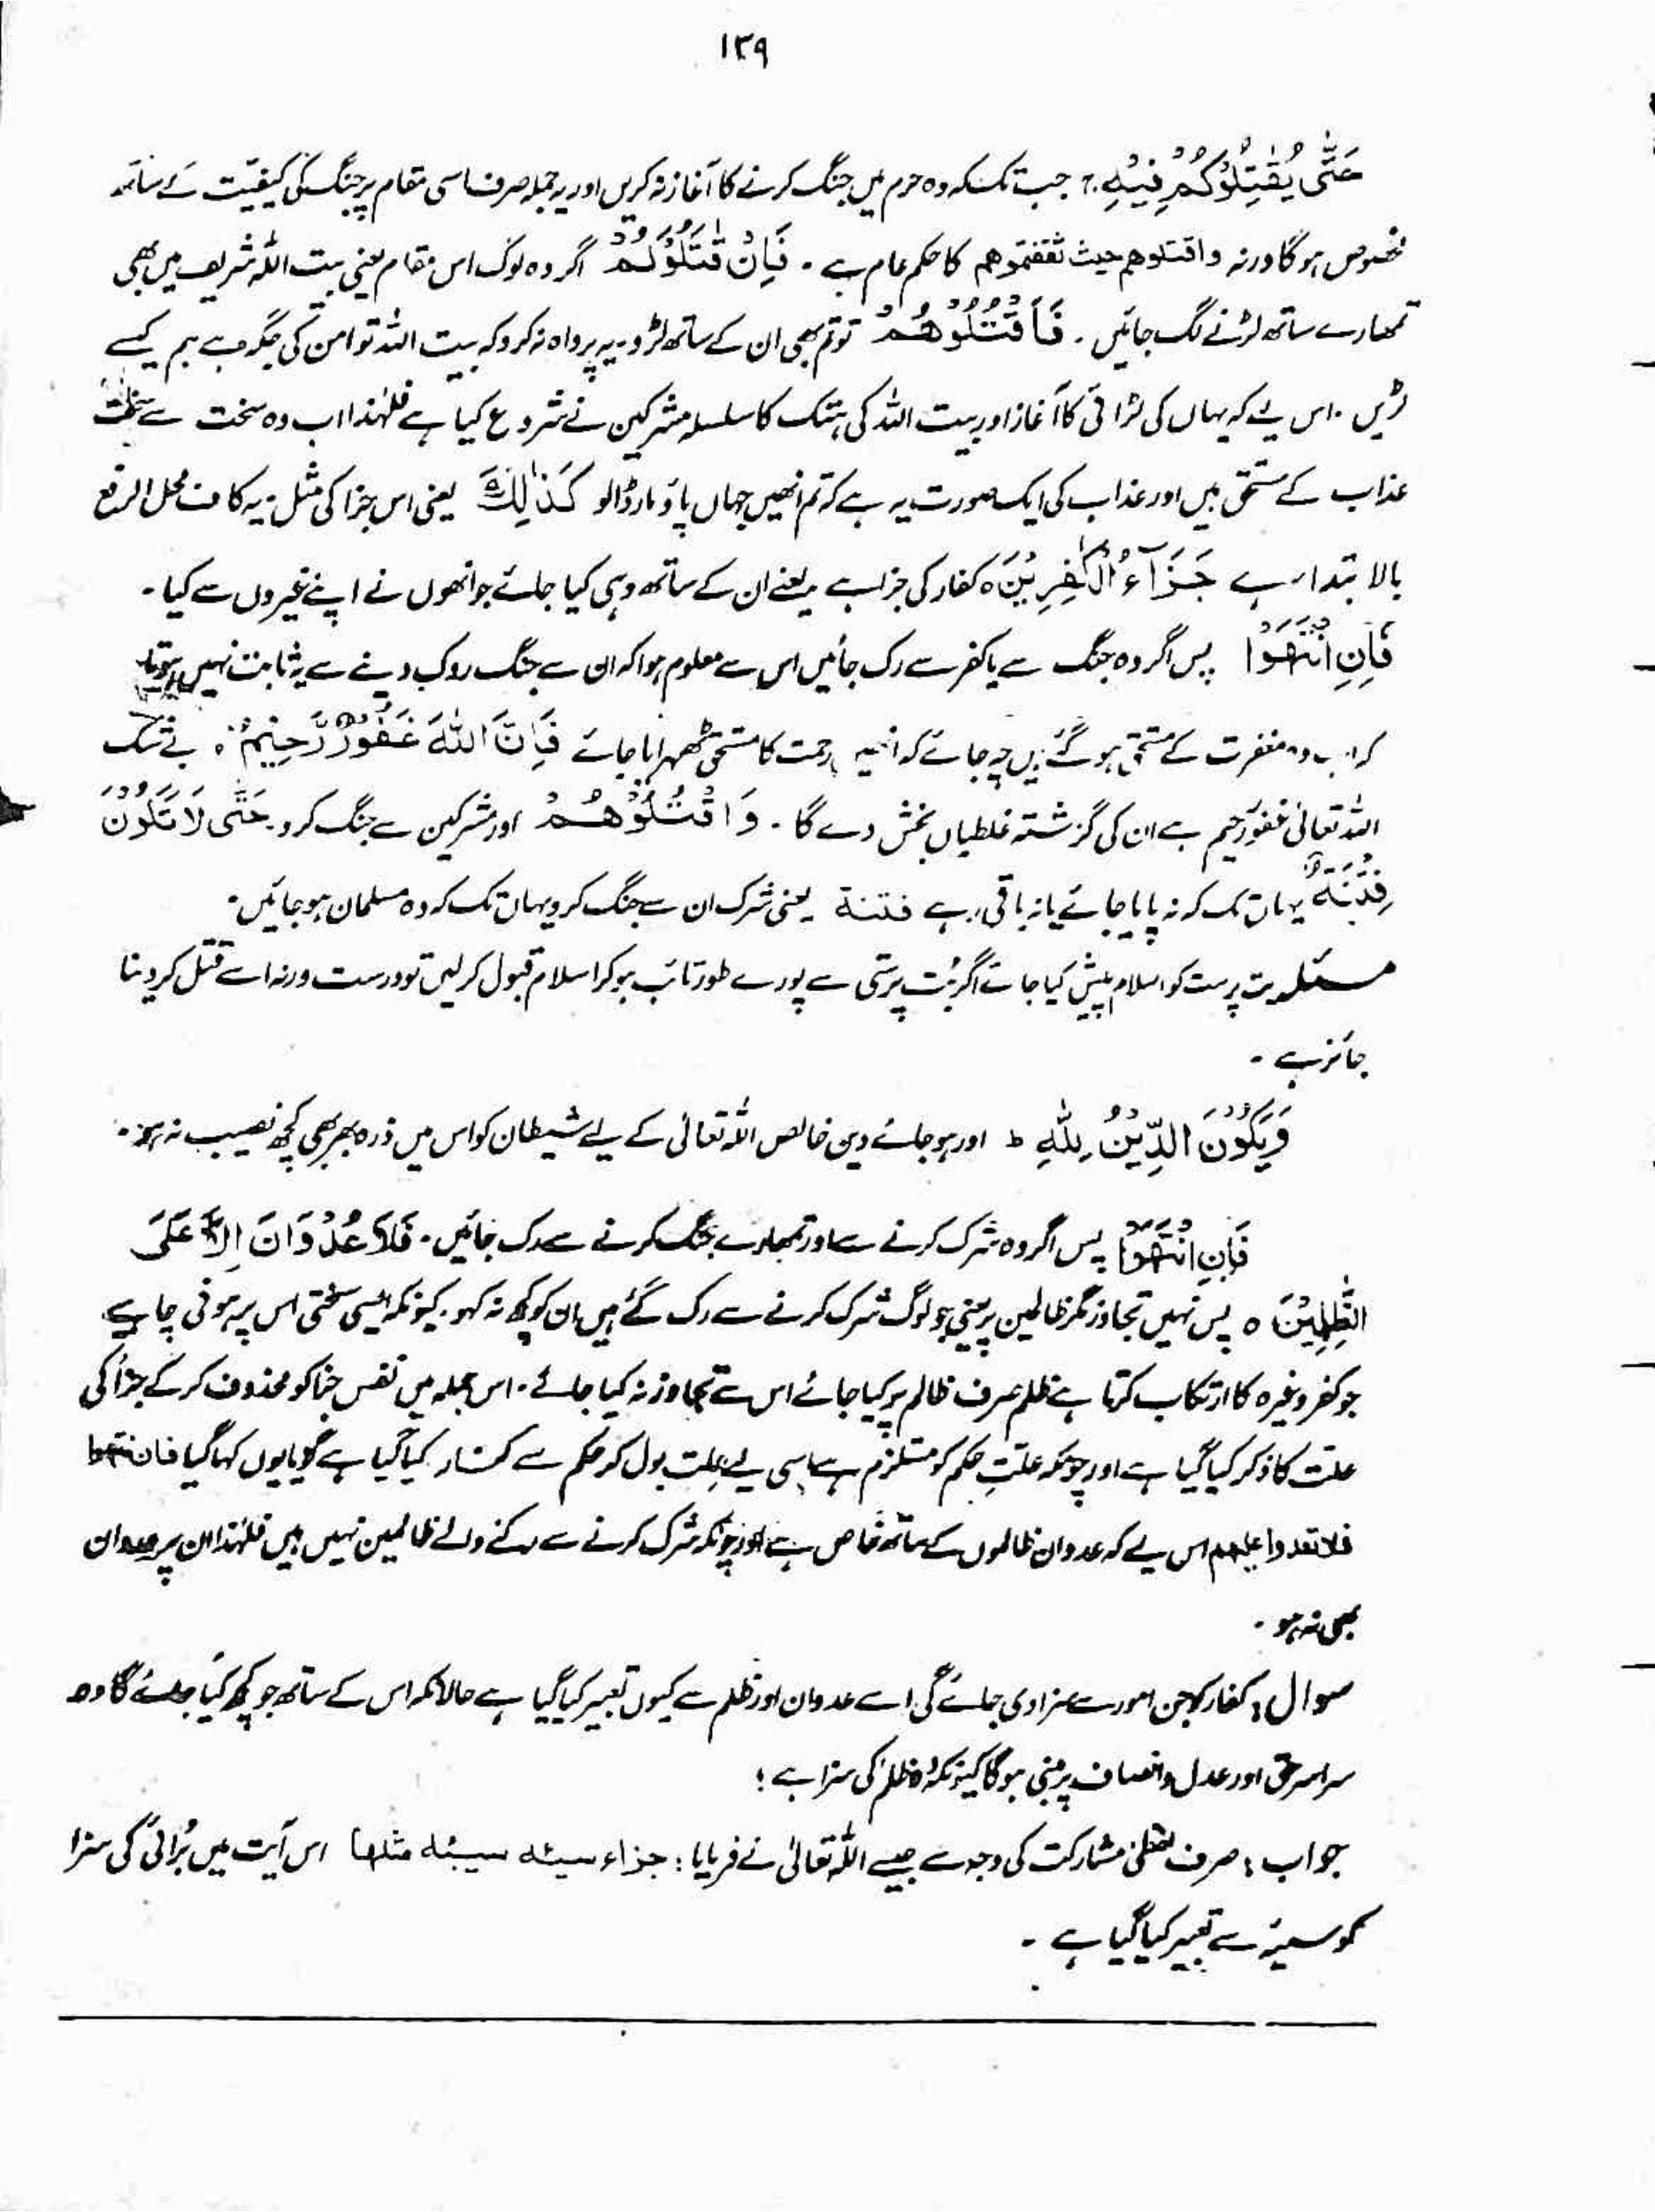 ۱۳۹
حَتّٰى يُقٰتِلُوْكُمْ فِيْهِ ۚ جب تک کہ وہ حرم میں جنگ کرنے کا آغاز نہ کریں اور یہ جملہ صرف اسی مقام پر جنگ کی کیفیّت کے ساتھ
مخصوص ہوگا ورنہ واقتلوهم حيث ثقفتموهم کا حکم عام ہے ۔ فَاِنْ قٰتَلُوْكُمْ اگر وہ لوگ اس مقام یعنی بیت اللّٰہ شریف میں بھی
تمھارے ساتھ لڑنے لگ جائیں ۔ فَاقْتُلُوْهُمْ تو تم بھی ان کے ساتھ لڑو۔ یہ پرواہ نہ کرو کہ بیت اللّٰہ تو امن کی جگہ ہے ہم کیسے
لڑیں ۔ اس لیے کہ یہاں کی لڑائی کا آغاز اور بیت اللّٰہ کی ہتک کا سلسلہ مشرکین نے شروع کیا ہے فلہٰذا اب وہ سخت سے سخت
عذاب کے مستحق ہیں اور عذاب کی ایک صورت یہ ہے کہ تم انھیں جہاں پاؤ مار ڈالو كَذٰلِكَ یعنی اس جزا کی مثل ۔ یہ کاف محل الرفع
بالابتداء ہے جَزَآءُ الْكٰفِرِيْنَ ○ کفار کی جزا ہے یعنے ان کے ساتھ وہی کیا جائے جو انھوں نے اپنے غیروں سے کیا ۔
فَاِنِ انْتَهَوْا پس اگر وہ جنگ سے یا کفر سے رک جائیں اس سے معلوم ہوا کہ ان سے جنگ روک دینے سے یہ ثابت نہیں ہوتا
کہ اب وہ مغفرت کے مستحق ہو گئے ہیں چہ جائے کہ انہیں رحمت کا مستحق ٹھہرایا جائے فَاِنَّ اللّٰهَ غَفُوْرٌ رَّحِيْمٌ ○ بے شک
اللّٰہ تعالیٰ غفور رحیم ہے ان کی گزشتہ غلطیاں بخش دے گا ۔ وَ اقْتُلُوْهُمْ اور مشرکین سے جنگ کرو۔ حَتّٰى لَا تَكُوْنَ
فِتْنَةٌ یہاں تک کہ نہ پایا جائے یا نہ باقی رہے فتنة یعنی شرک ان سے جنگ کرو یہاں تک کہ وہ مسلمان ہو جائیں ۔
مسئلہ بت پرست کو اسلام پیش کیا جائے اگر بُت پرستی سے پورے طور تائب ہو کر اسلام قبول کر لیں تو درست ورنہ اسے قتل کر دینا
جائز ہے ۔
وَّيَكُوْنَ الدِّيْنُ لِلّٰهِ ؕ اور ہو جائے دین خالص اللّٰہ تعالیٰ کے لیے شیطان کو اس میں ذرہ بھر بھی کچھ نصیب نہ ہو ۔
فَاِنِ انْتَهَوْا پس اگر وہ شرک کرنے سے اور تمہارے جنگ کرنے سے رک جائیں ۔ فَلَا عُدْوَانَ اِلَّا عَلَى
الظّٰلِمِيْنَ ○ پس نہیں تجاوز مگر ظالمین پر یعنی جو لوگ شرک کرنے سے رک گئے ہیں ان کو کچھ نہ کہو۔ کیونکہ ایسی سختی اس پر ہونی چاہیے
جو کفر وغیرہ کا ارتکاب کرتا ہے ظلم صرف ظالم پر کیا جائے اس سے تجاوز نہ کیا جائے ۔ اس جملہ میں نفس جزا کو محذوف کر کے جزاء کی
علت کا ذکر کیا گیا ہے اور چونکہ علتِ حکم کو مستلزم ہے اسی لیے علت بول کر حکم سے کیا گیا ہے گویا یوں کہا گیا فان انتهوا
فلا تعدوا عليهم اس لیے کہ عدوان ظالموں کے ساتھ خاص ہے اور چونکہ شرک کرنے سے رکنے والے ظالمین نہیں ہیں فلہٰذا ان پر عدوان
بھی نہ ہو ۔
سوال : کفار کو جن امور سے سزا دی جائے گی اسے عدوان اور ظلم سے کیوں تعبیر کیا گیا ہے حالانکہ اس کے ساتھ جو کچھ کیا جائے گا وہ
سراسر حق اور عدل و انصاف پر مبنی ہوگا کیونکہ وہ ظلم کی سزا ہے ؛
جواب : صرف لفظی مشارکت کی وجہ سے جیسے اللّٰہ تعالیٰ نے فرمایا : جزاء سيئه سيئه مثلها اس آیت میں بُرائی کی سزا
کو سیئہ سے تعبیر کیا گیا ہے ۔